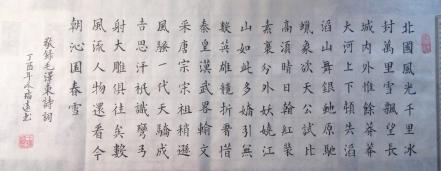 北國風光千里冰
封萬里雪飄望長
城内外餘莽莽
大河上下頓失滔
滔山舞銀蛇原馳
蠟象欲天公試比
高須晴日看紅裝
素裹分外妖嬈江
山如此多嬌引無
數英雄競折腰惜
秦皇漢武略輸文
采唐宗宋祖稍遜
風騷一代天驕成
吉思汗祇識彎弓
射大雕俱往矣數
風流人物還看今
朝沁园春雪
敬錄毛澤東詩詞
丁酉年冬